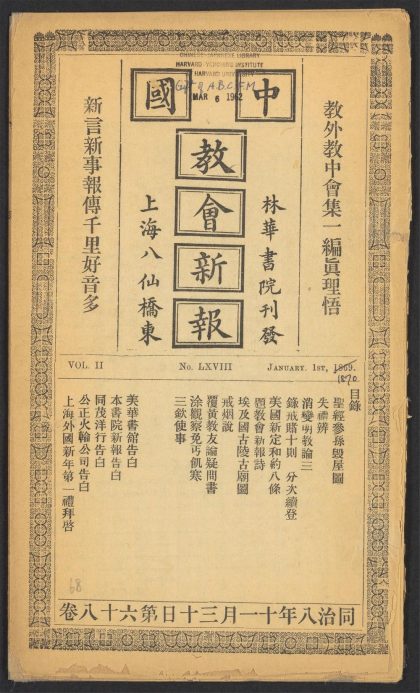 CHINESE-JAPANESE LIBRARY
HARVARD-YENCHING INSTITUTE
HARVARD UNIVERSITY
Gift of A.B.C.F.M
MAR 6 1962
中國
教會新報
教外教中會集一編眞理悟
林華書院刊發
上海八仙橋東
新言新事報傳千里好音多
VOL. II
No. LXVIII
JANUARY. 1ST, 1869.
1870
目錄
聖經參孫毀屋圖
失禮辨
消變明教論三
錄戒賭十則 分次續登
美國新定和約八條
題教會新報詩
埃及國古陵古廟圖
戒烟說
覆黃教友論疑問書
涂觀察免丐飢寒
三欽使事
美華書館告白
本書院新報告白
同茂洋行告白
公正火輪公司告白
上海外國新年第一禮拜啓
68
同治八年十一月三十日第六十八卷